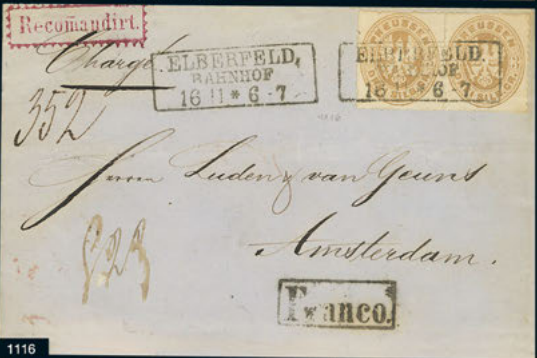 Recomandirt.
Chargé
352
ELBERFELD,
BAHNHOF
16 11 * 6-7
ELBERFELD.
BAHNHOF
16 * 6-7.
PREUSSEN
PREUSSEN
Herrn Luden & van Geuns
Amsterdam.
Franco.
1116